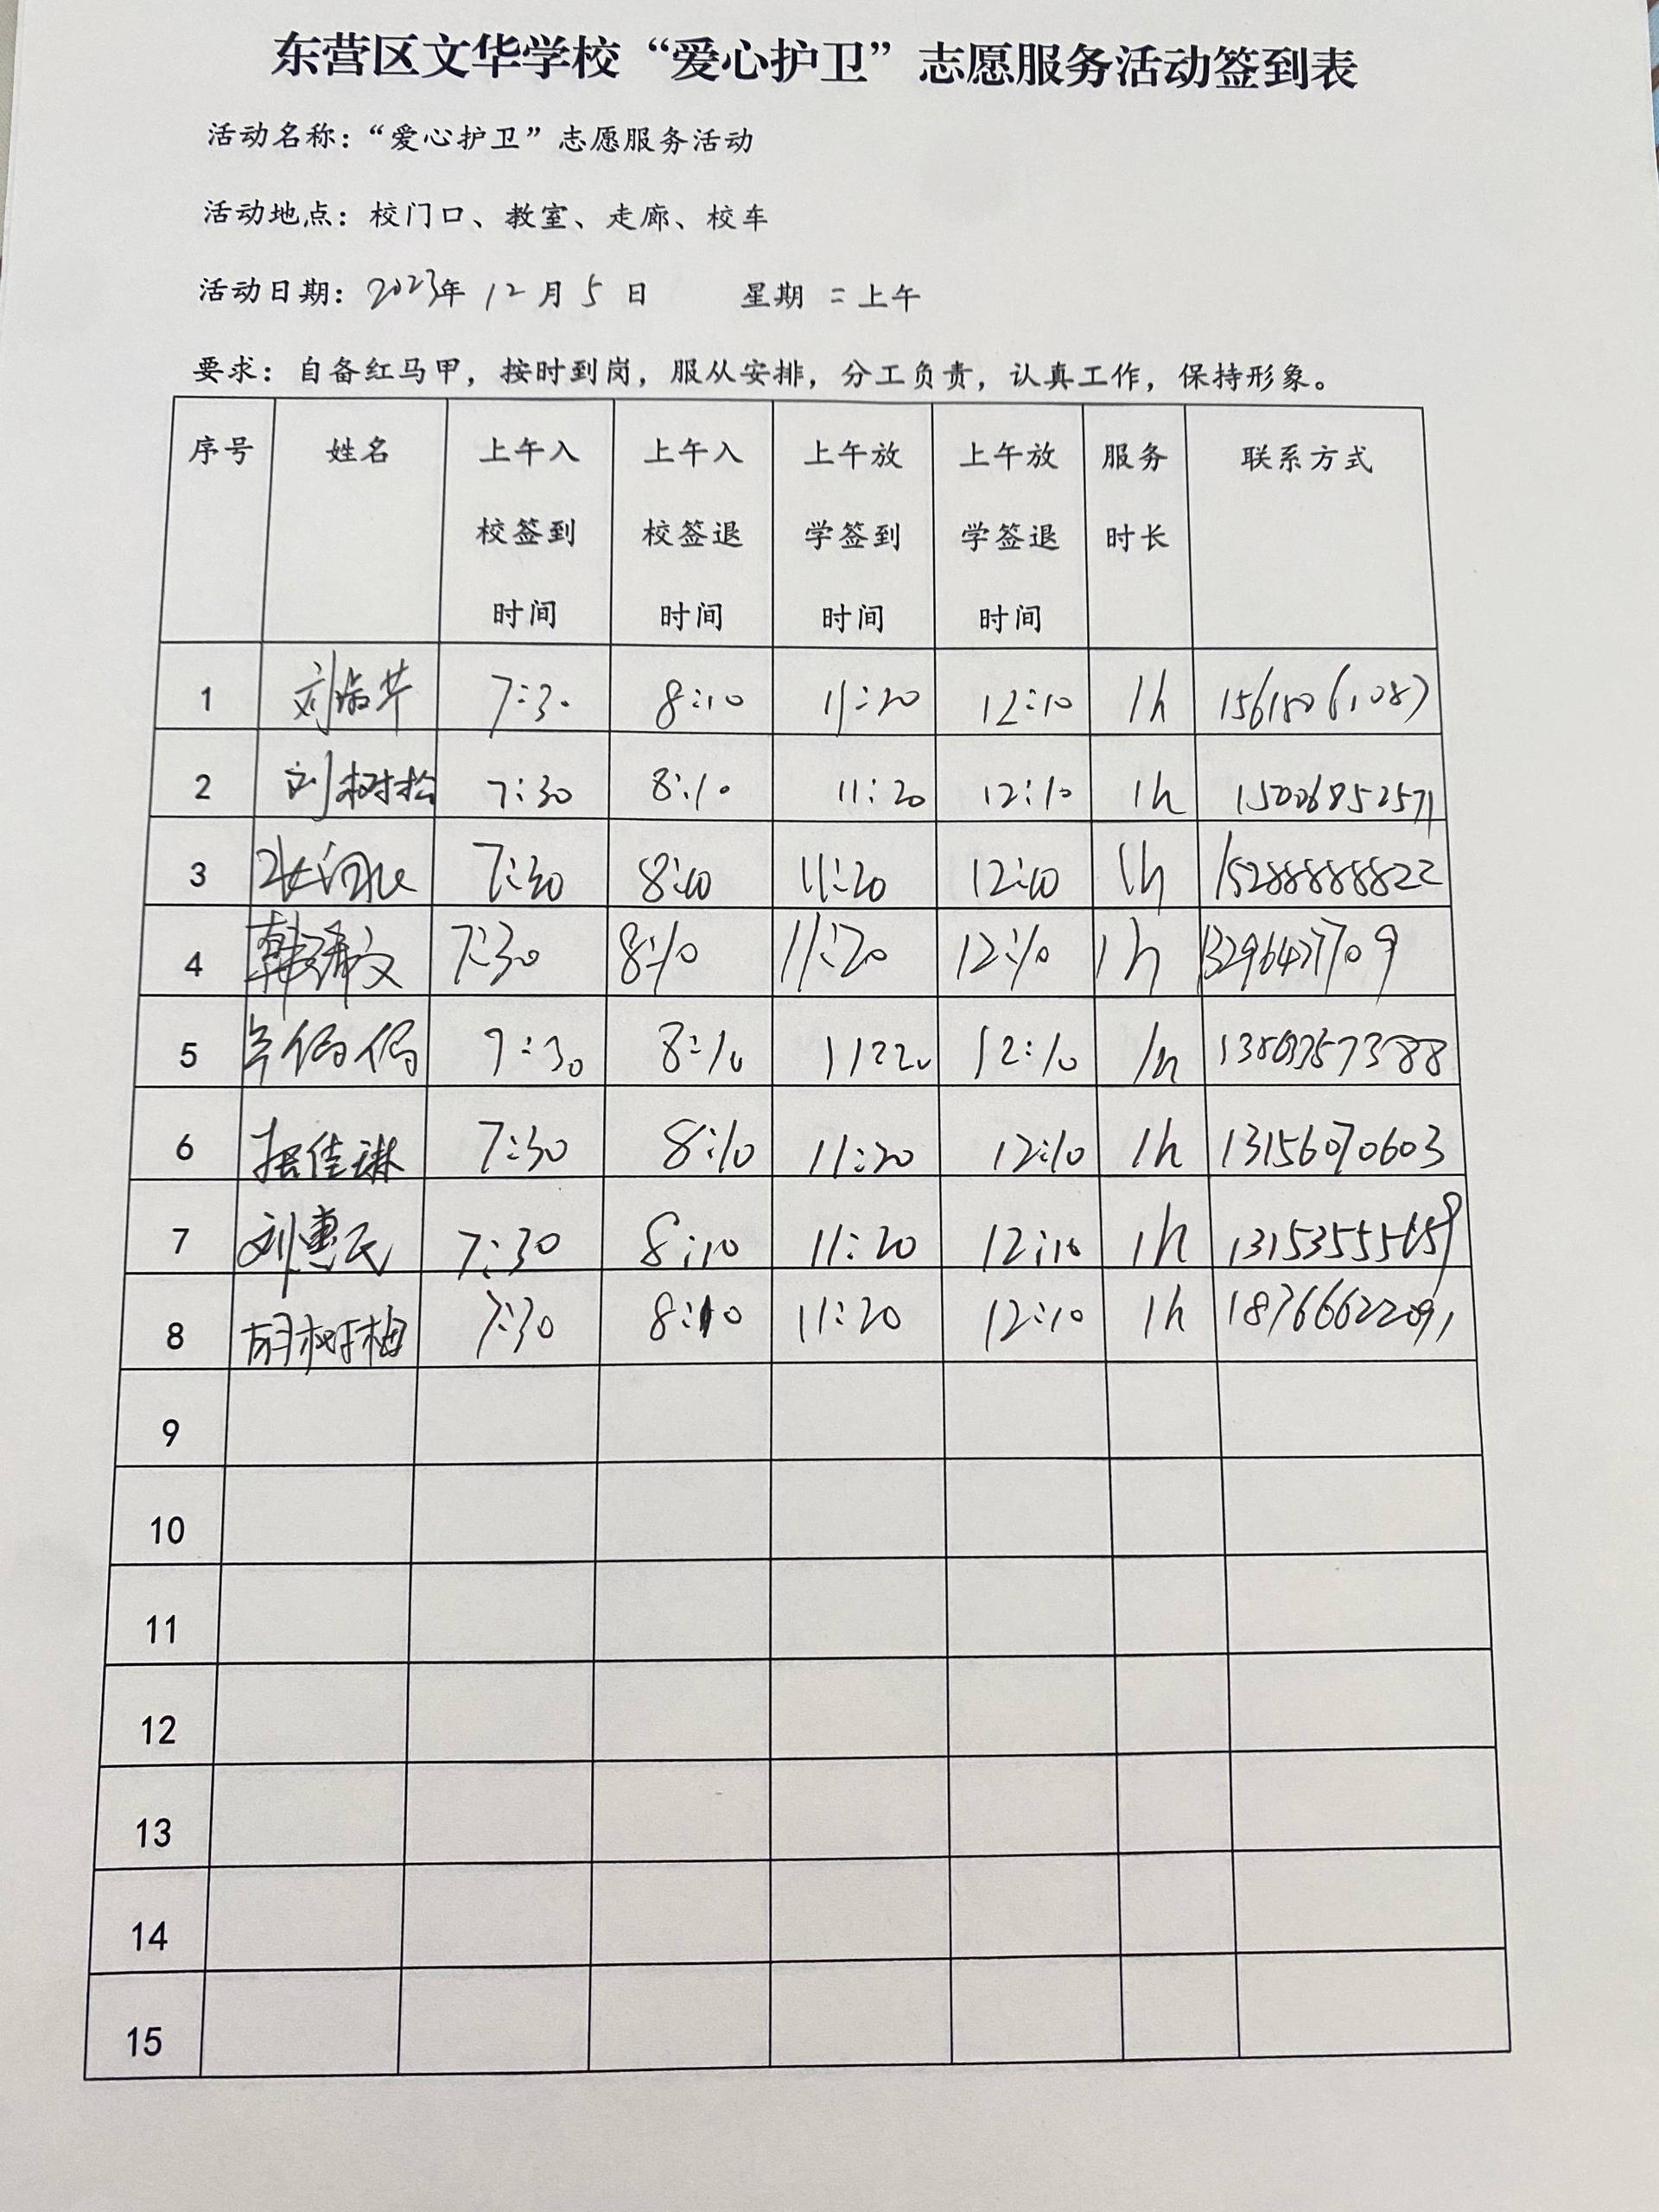 东营区文华学校“爱心护卫”志愿服务活动签到表
活动名称：“爱心护卫”志愿服务活动
活动地点：校门口、教室、走廊、校车
活动日期：2023年 12 月 5 日 星期 二 上午
要求：自备红马甲，按时到岗，服从安排，分工负责，认真工作，保持形象。
序号 姓名 上午入校签到时间 上午入校签退时间 上午放学签到时间 上午放学签退时间 服务时长 联系方式
1 7:30 8:10 11:20 12:10 1h
2 刘树松 7:30 8:10 11:20 12:10 1h 15006852571
3 7:30 8:10 11:20 12:10 1h 15288888822
4 7:30 8:10 11:20 12:10 1h
5 7:30 8:10 11:20 12:10 1h
6 7:30 8:10 11:20 12:10 1h 13156070603
7 刘惠民 7:30 8:10 11:20 12:10 1h
8 胡树梅 7:30 8:10 11:20 12:10 1h 18766622091
9
10
11
12
13
14
15